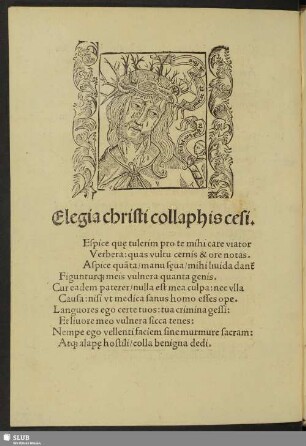 Elegia christi collaphis cesi.
Espice quę tulerim pro te mihi care viator
Verbera: quas vultu cernis & ore notas.
Aspice quãta/manu sęua/mihi liuida dant'
Figunturq; meis vulnera quanta genis.
Cur eadem paterer/nulla est mea culpa: nec vlla
Causa: nisi vt medica sanus homo esses ope.
Languores ego certe tuos: tua crimina gessi:
Et liuore meo vulnera sicca tenes:
Nempe ego vellenti faciem sine murmure sacram:
Atq; alapę hostili/colla benigna dedi.
SLUB